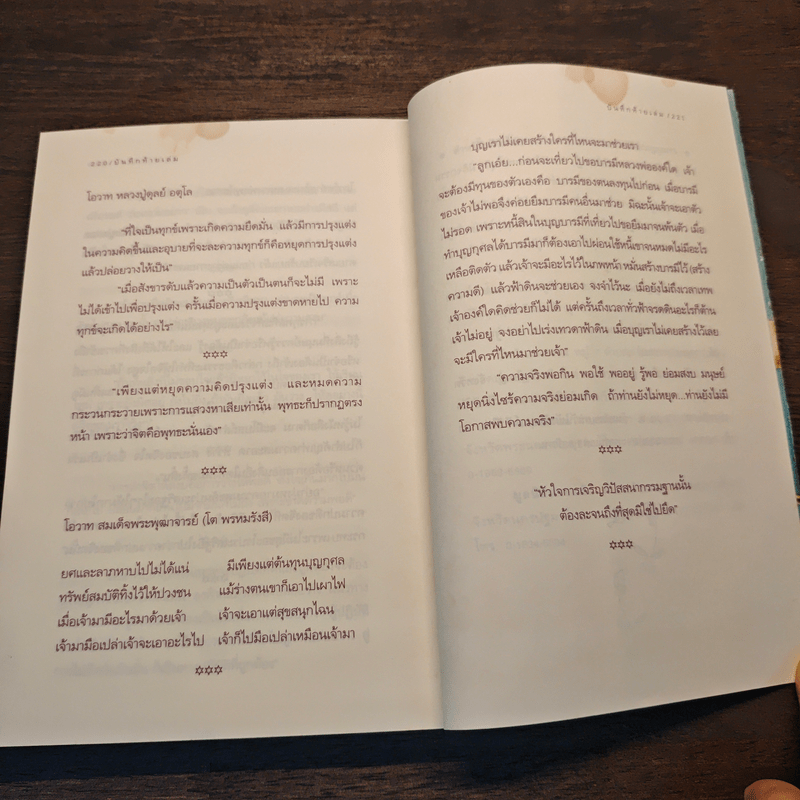 บันทึกท้ายเล่ม
โอวาท หลวงปู่ดุลย์ อตุโล
"ที่ใจเป็นทุกข์เพราะเกิดความยึดมั่น แล้วมีการปรุงแต่ง
ในความคิดขึ้นและอุบายที่จะละความทุกข์ก็คือหยุดการปรุงแต่ง
แล้วปล่อยวางให้เป็น"
"เมื่อสังขารดับแล้วความเป็นตัวเป็นตนก็จะไม่มี เพราะ
ไม่ได้เข้าไปเพื่อปรุงแต่ง ครั้นเมื่อความปรุงแต่งขาดหายไป ความ
ทุกข์จะเกิดได้อย่างไร"
✡✡✡
"เพียงแต่หยุดความคิดปรุงแต่ง และหมดความ
กระวนกระวายเพราะการแสวงหาเสียเท่านั้น พุทธะก็ปรากฏตรง
หน้า เพราะว่าจิตคือพุทธะนั่นเอง"
✡✡✡
โอวาท สมเด็จพระพุฒาจารย์ (โต พรหมรังสี)
ยศและลาภหาบไปไม่ได้แน่ มีเพียงแต่ต้นทุนบุญกุศล
ทรัพย์สมบัติทิ้งไว้ให้ปวงชน แม้ร่างตนเขาก็เอาไปเผาไฟ
เมื่อเจ้ามามีอะไรมาด้วยเจ้า เจ้าจะเอาแต่สุขสนุกไฉน
เจ้ามามือเปล่าเจ้าจะเอาอะไรไป เจ้าก็ไปมือเปล่าเหมือนเจ้ามา
✡✡✡
บันทึกท้ายเล่ม
บุญเราไม่เคยสร้างใครที่ไหนจะมาช่วยเรา
"ลูกเอ๋ย...ก่อนจะเที่ยวไปขอบารมีหลวงพ่อองค์ใด เจ้า
จะต้องมีทุนของตัวเองคือ บารมีของตนลงทุนไปก่อน เมื่อบารมี
ของเจ้าไม่พอจึงค่อยยืมบารมีคนอื่นมาช่วย มิฉะนั้นเจ้าจะเอาตัว
ไม่รอด เพราะหนี้สินในบุญบารมีที่เที่ยวไปขอยืมมาจนพ้นตัว เมื่อ
ทำบุญกุศลได้บารมีมาก็ต้องเอาไปผ่อนใช้หนี้เขาจนหมดไม่มีอะไร
เหลือติดตัว แล้วเจ้าจะมีอะไรไว้ในภพหน้า หมั่นสร้างบารมีไว้ (สร้าง
ความดี) แล้วฟ้าดินจะช่วยเอง จงจำไว้นะ เมื่อยังไม่ถึงเวลาเทพ
เจ้าองค์ใดคิดช่วยก็ไม่ได้ แต่ครั้นถึงเวลาทั่วฟ้าจรดดินอะไรก็ต้าน
เจ้าไม่อยู่ จงอย่าไปเร่งเทวดาฟ้าดิน เมื่อบุญเราไม่เคยสร้างไว้เลย
จะมีใครที่ไหนมาช่วยเจ้า"
"ความจริงพอกิน พอใช้ พออยู่ รู้พอ ย่อมสงบ มนุษย์
หยุดนิ่งไซร้ความจริงย่อมเกิด ถ้าท่านยังไม่หยุด...ท่านยังไม่มี
โอกาสพบความจริง"
✡✡✡
"หัวใจการเจริญวิปัสสนากรรมฐานนั้น
ต้องละจนถึงที่สุดมิใช่ไปยึด"
✡✡✡